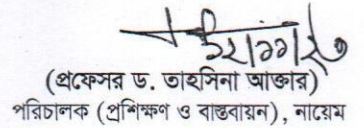 (প্রফেসর ড. তাহসিনা আক্তার)
পরিচালক (প্রশিক্ষণ ও বাস্তবায়ন), নায়েম